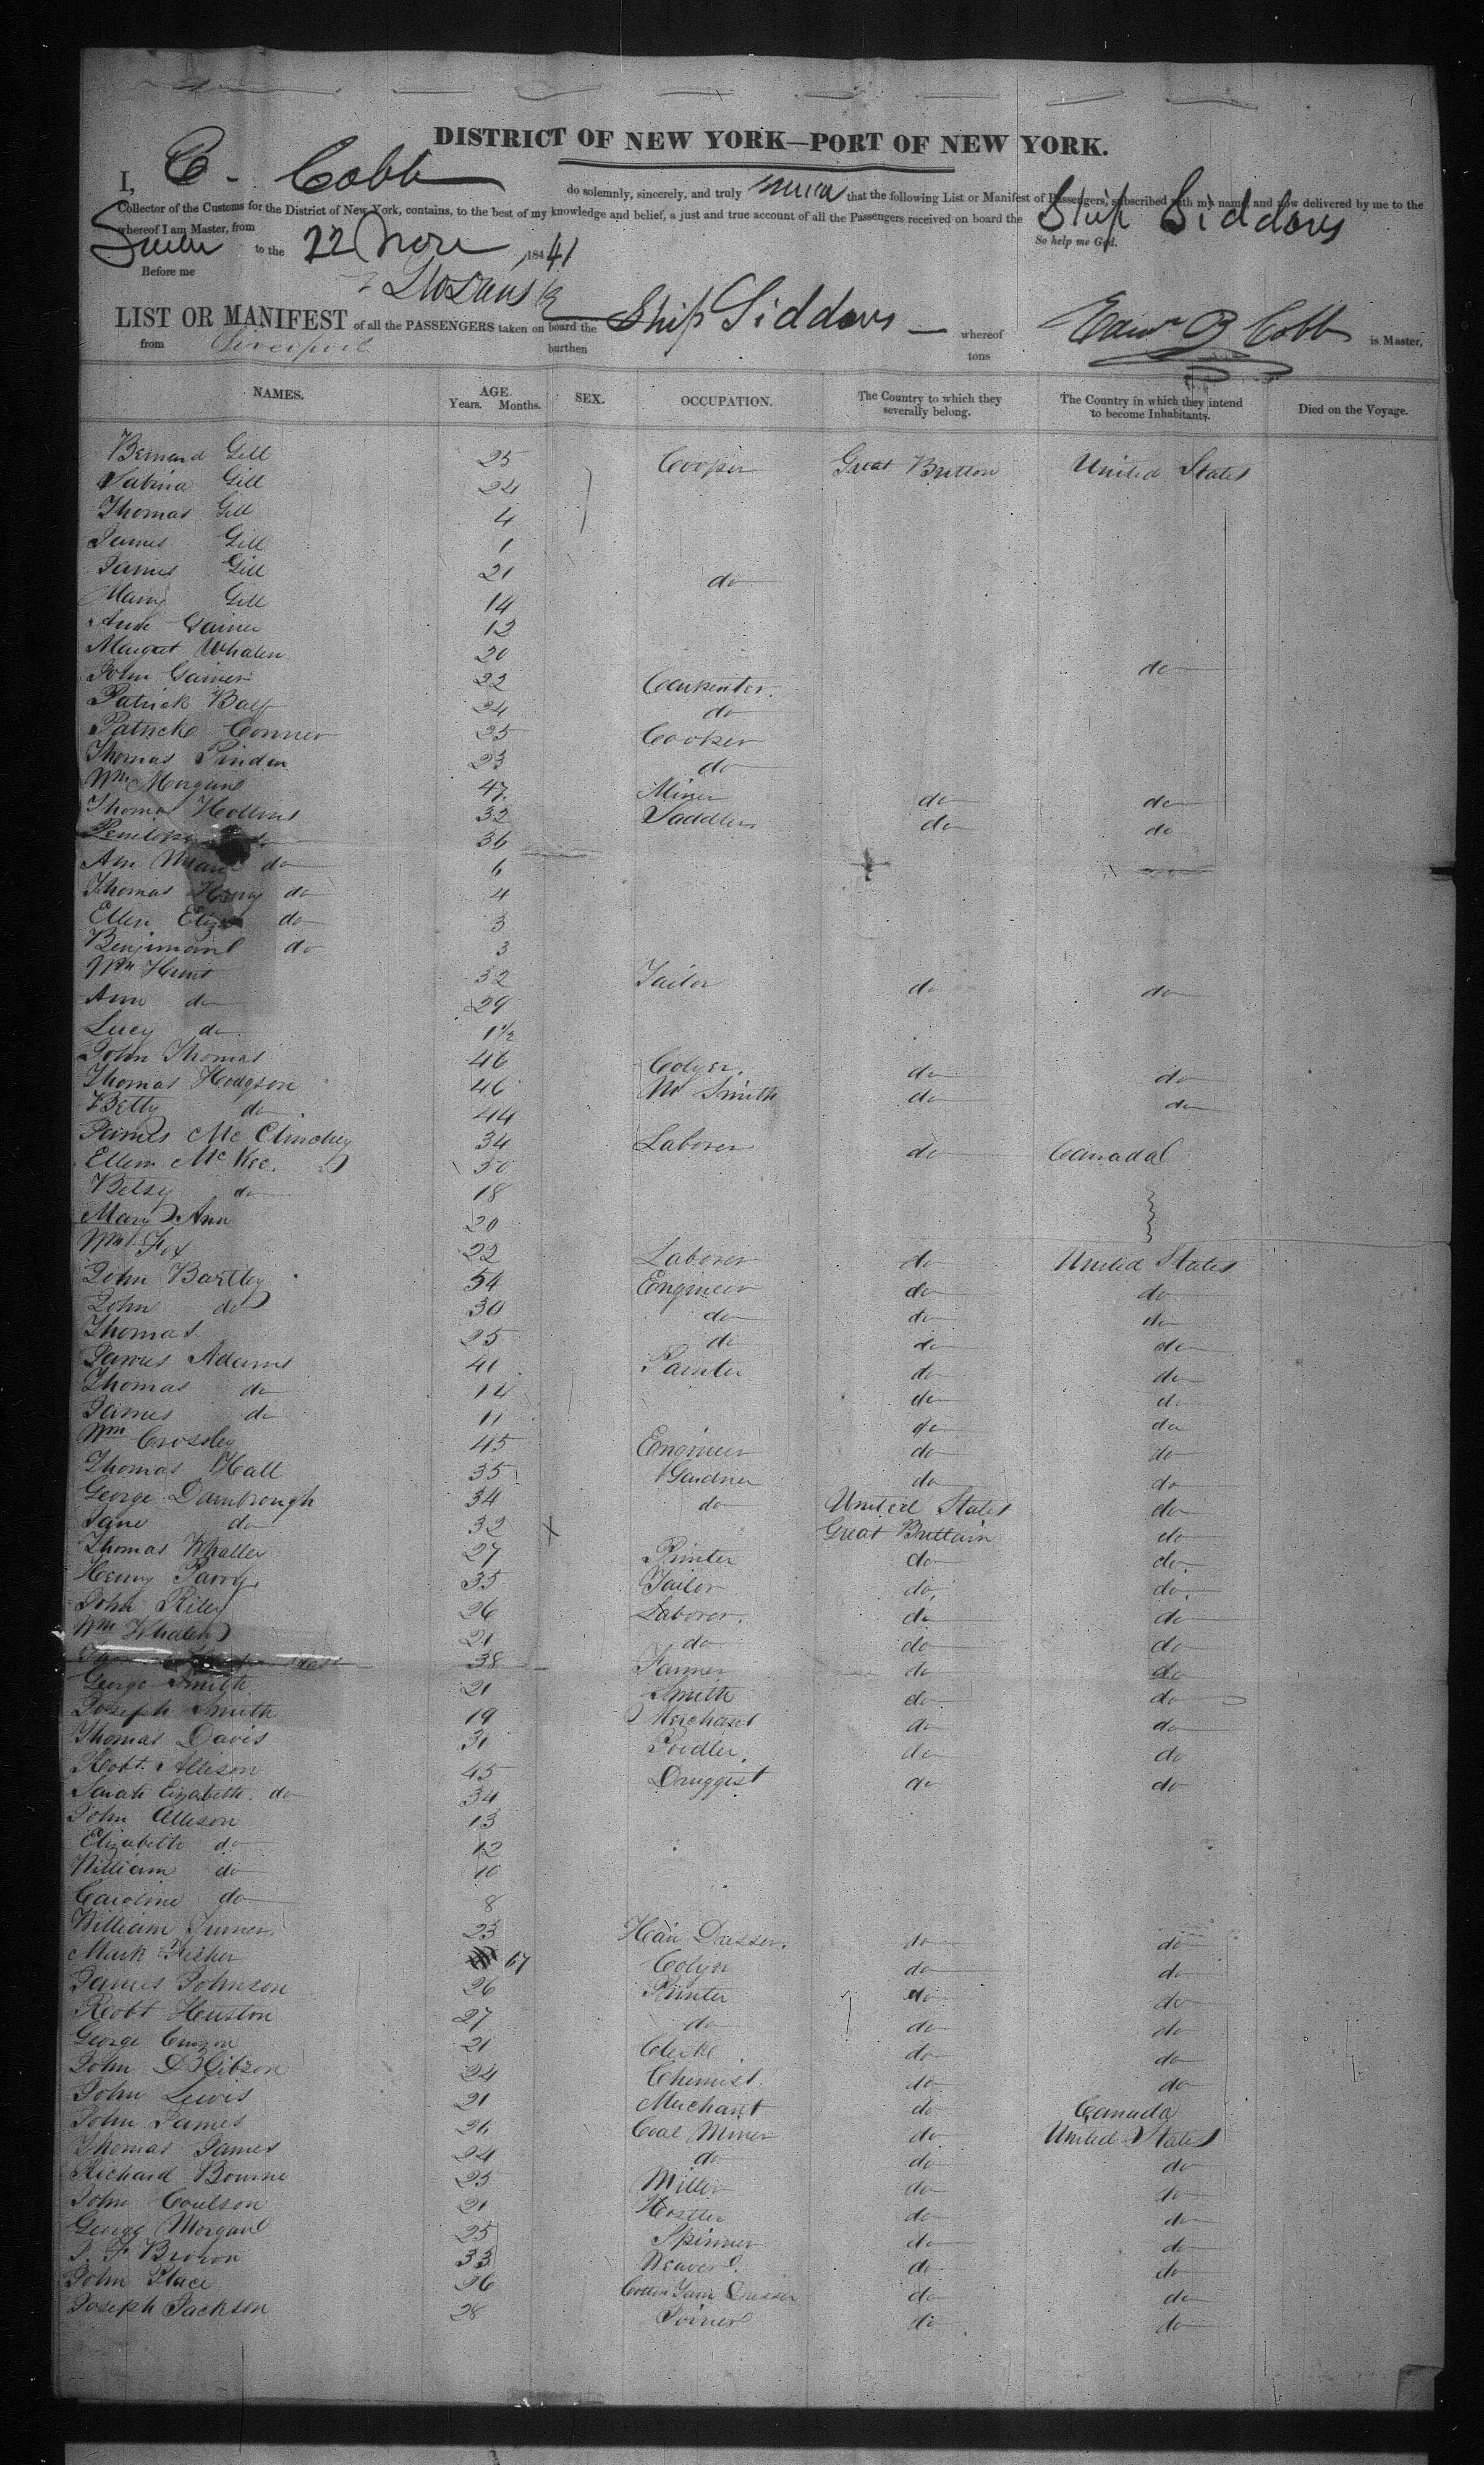 DISTRICT OF NEW YORK—PORT OF NEW YORK.
I, E. Cobb do solemnly, sincerely, and truly swear that the following List or Manifest of Passengers, subscribed with my name, and now delivered by me to the
Collector of the Customs for the District of New York, contains, to the best of my knowledge and belief, a just and true account of all the Passengers received on board the Ship Siddons
whereof I am Master, from
Sworn to the 22 Nove 184 41 So help me God.
Before me
LIST OR MANIFEST of all the PASSENGERS taken on board the Ship Siddons whereof Edwd B Cobb is Master,
from Liverpool burthen tons
NAMES. AGE. Years. Months. SEX. OCCUPATION. The Country to which they severally belong. The Country in which they intend to become Inhabitants. Died on the Voyage.
Bernard Gill 25 Cooper Great Britton United States
Sabina Gill 24
Thomas Gill 4
James Gill 1
James Gill 21 do
Mary Gill 14
Ann Gainer 12
Margret Whalen 20 do
John Gainer 22 Carpenter.
Patrick Balf 24 do
Patrick Conner 25 Cooper
Thomas Pinder 23 do
Wm Morgans 47 Miner do do
Thomas Hollins 32 Saddler do do
Penelope do 36
Ann do 6
Thomas Henry do 4
Ellen Eliza do 3
Benjimain do 3
Wm Hunt 32 Tailor do do
Ann do 29
Lucy do 1½
John Thomas 46 Colyer. do do
Thomas Hodgson 46 Smith do do
Betty do 44
James Mc Clinchy 34 Laborer do Canada
Ellen McKee. 30
Betsy do 18
Mary Ann 20
Wm Fox 22 Laborer do United States
John Bartley 54 Engineer do do
John do 30 do do do
Thomas 25 do do do
James Adams 41 Painter do do
Thomas do 14 do do
James do 11 do do
Wm Crossley 45 Engineer do do
Thomas Hall 35 Gardner do do
George Dambrough 34 do United States do
Jane do 32 Great Brittain do
Thomas Whalley 27 Printer do do
Henry Parry 35 Tailor do do
John Riley 26 Laborer. do do
Wm Whalen 21 do do do
38 Farmer do do
George Smith 21 Smith do do
Joseph Smith 19 Merchant do do
Thomas Davis 31 Poodler. do do
Robt. Allison 45 Druggist do do
Sarah Elizabeth. do 34
John Allison 13
Elizabeth do 12
William do 10
Caroline do 8
William Turner 23 Hair Dresser. do do
Mark Fisher 67 Colyer do do
James Johnson 26 Printer do do
Robt Heuston 27 do do do
George Curzon 21 Clerke do do
John D Hibson 24 Chemist. do do
John Lewis 21 Merchant do Canada
John James 26 Coal Miner do United States
Thomas James 24 do do do
Richard Bourne 25 Miller do do
John Coulson 21 Hostler do do
George Morgan 25 Spinner do do
J. F Brown 33 Weaver do do
John Place 26 Cotton Yarn Dresser do do
Joseph Jackson 28 Joiner do do